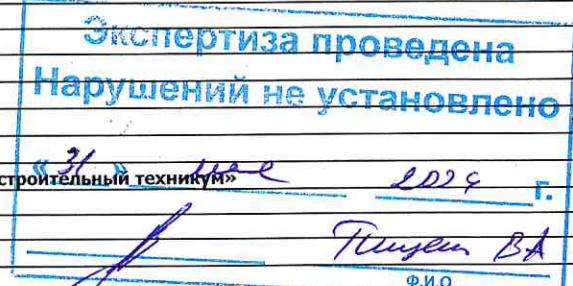 Экспертиза проведена
Нарушений не установлено
«31» мая 2024 г.
строительный техникум»
ВА
Ф.И.О